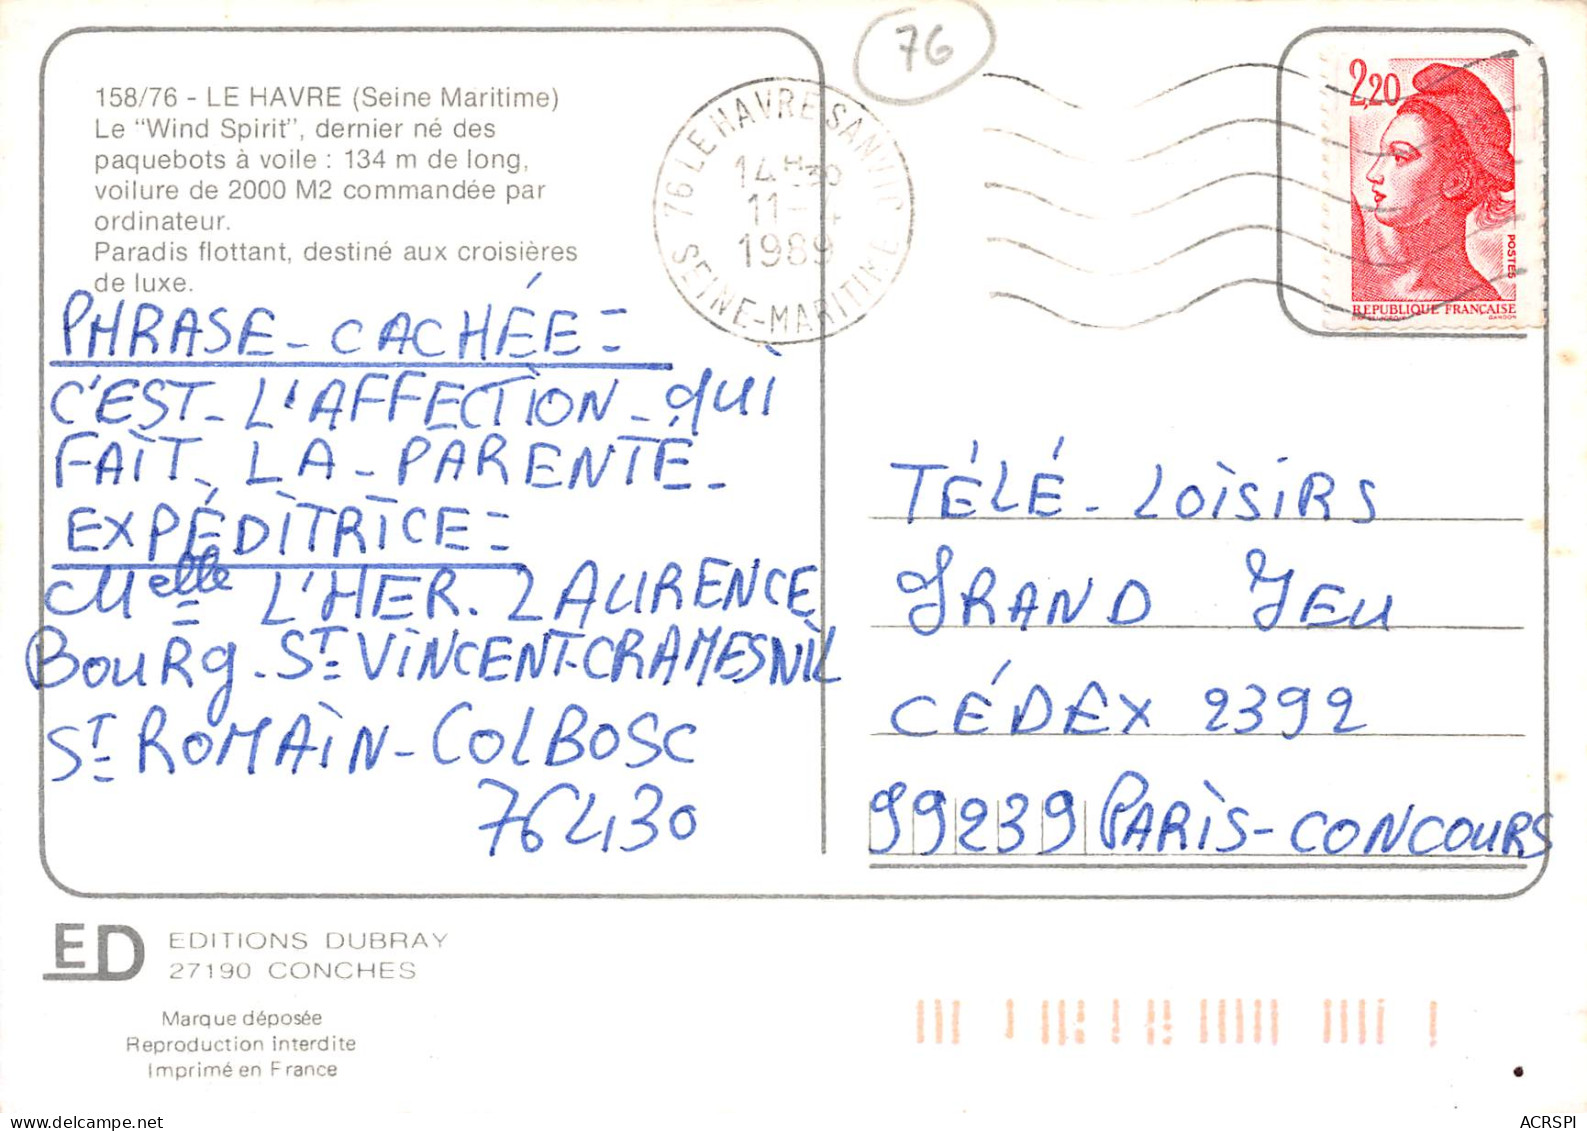 158/76 - LE HAVRE (Seine Maritime)
Le "Wind Spirit", dernier né des
paquebots à voile : 134 m de long,
voilure de 2000 M2 commandée par
ordinateur.
Paradis flottant, destiné aux croisières
de luxe.
PHRASE - CACHÉE =
C'EST - L'AFFECTION - QUI
FAIT - LA - PARENTÉ -
EXPÉDITRICE =
Melle L'HER. LAURENCE
BOURG - ST VINCENT-CRAMESNIL
ST ROMAIN - COLBOSC
76430
76
76 LE HAVRE SANVIC
14H30
11-4
1989
SEINE-MARITIME
2,20
POSTES
REPUBLIQUE FRANÇAISE
GANDON
TÉLÉ - LOISIRS
GRAND JEU
CÉDEX 2392
99239 PARIS-CONCOURS
ED
EDITIONS DUBRAY
27190 CONCHES
Marque déposée
Reproduction interdite
Imprimé en France
delcampe.net
ACRSPI